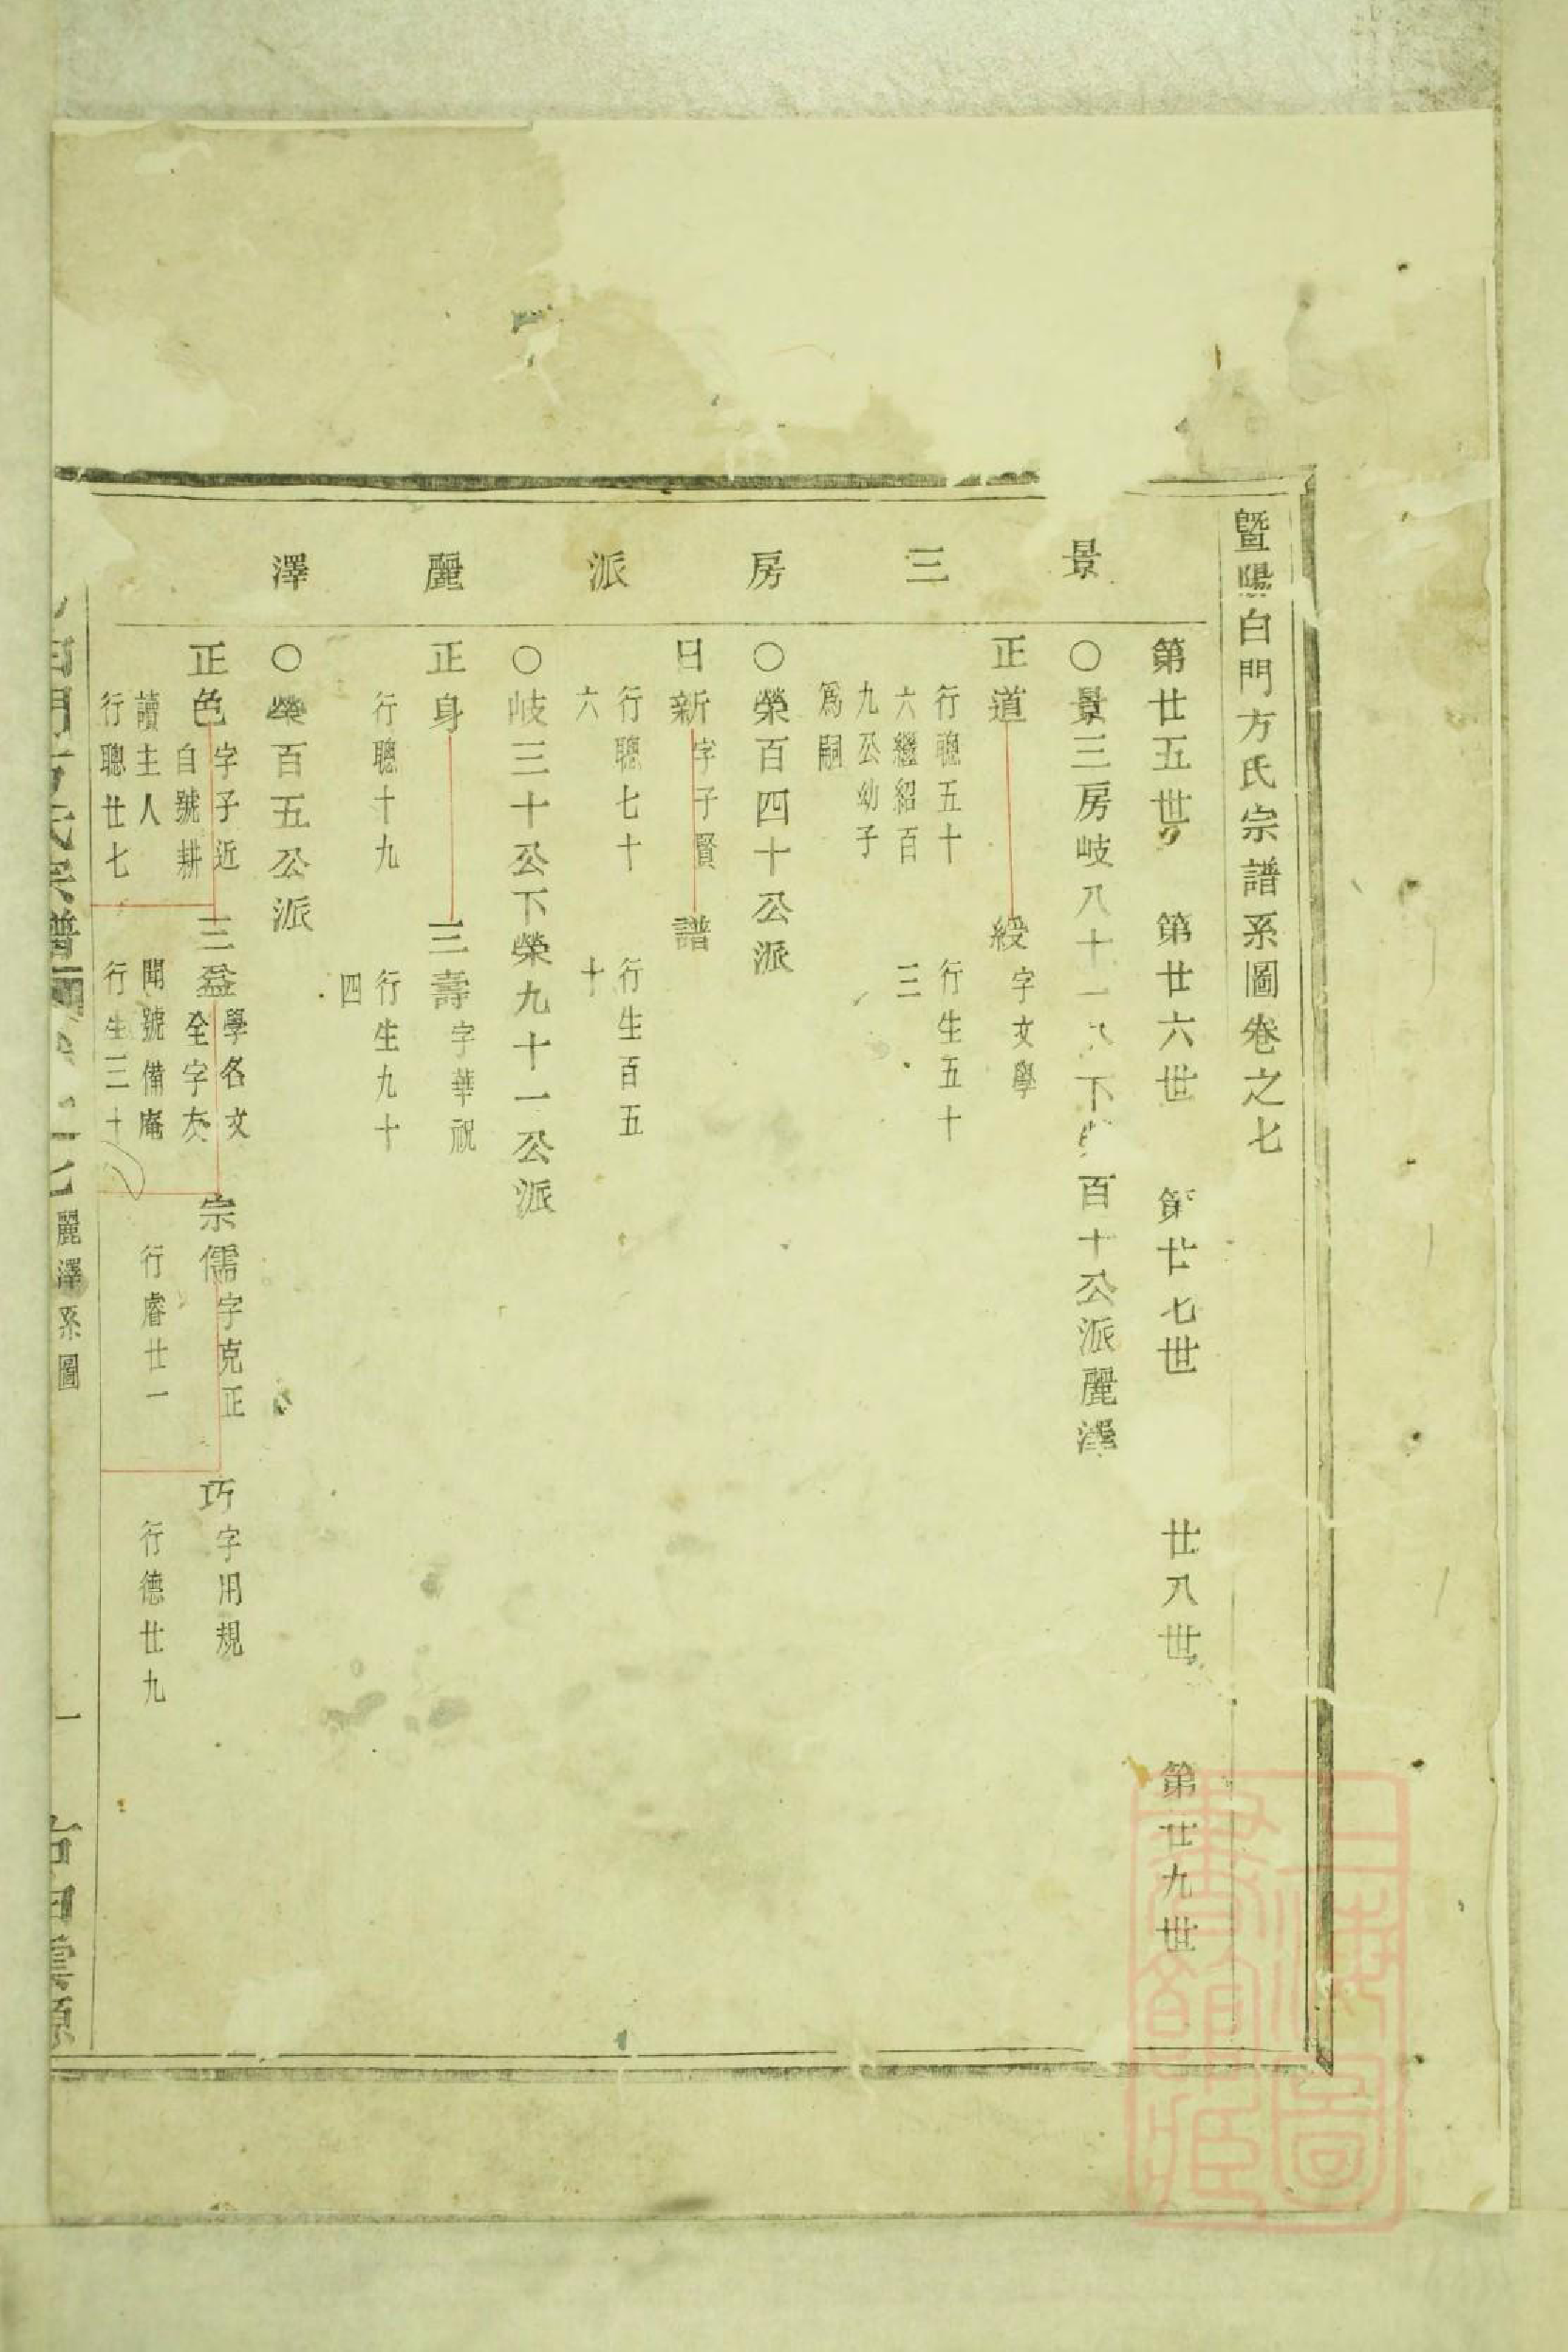 暨陽白門方氏宗譜系圖卷之七
景三房派麗澤
第廿五世 第廿六世 第廿七世 廿八世 第廿九世
○景三房岐八十一 下 百十公派麗澤
正道 綬字文學
行聰五十 行生五十
六繼紹百 三
九公幼子
爲嗣
○榮百四十公派
日新字子賢 譜
行聰七十 行生百五
六 十
○岐三十公下榮九十一公派
正身 三壽字華祝
行聰十九 行生九十
四
○榮百五公派
正色字子近 三益學名文 宗儒字克正 巧字用規
自號耕 全字友
讀主人 聞號備庵 行睿廿一 行德廿九
行聰廿七 行生三十
白門方氏宗譜 卷之七 麗澤系圖 一 古田雲源
上海圖書館藏